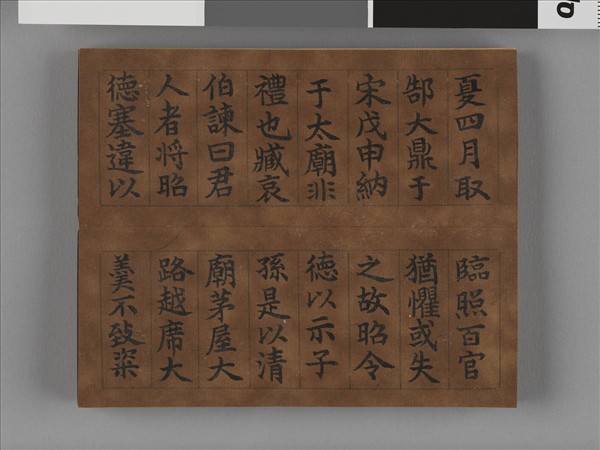 夏四月取
郜大鼎于
宋戊申納
于太廟非
禮也臧哀
伯諫曰君
人者将昭
德塞違以
臨照百官
猶懼或失
之故昭令
德以示子
孫是以清
廟茅屋大
路越席大
羹不致粢